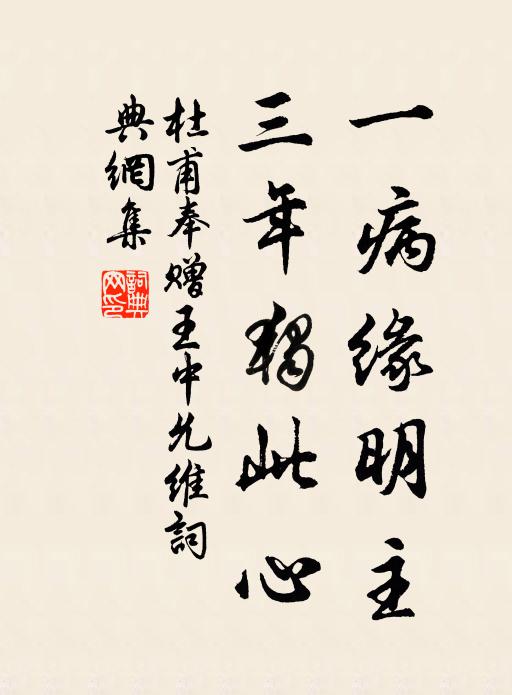 一病缘明主
三年獨此心
杜甫奉赠王中允维詞
典網集
詞典网印